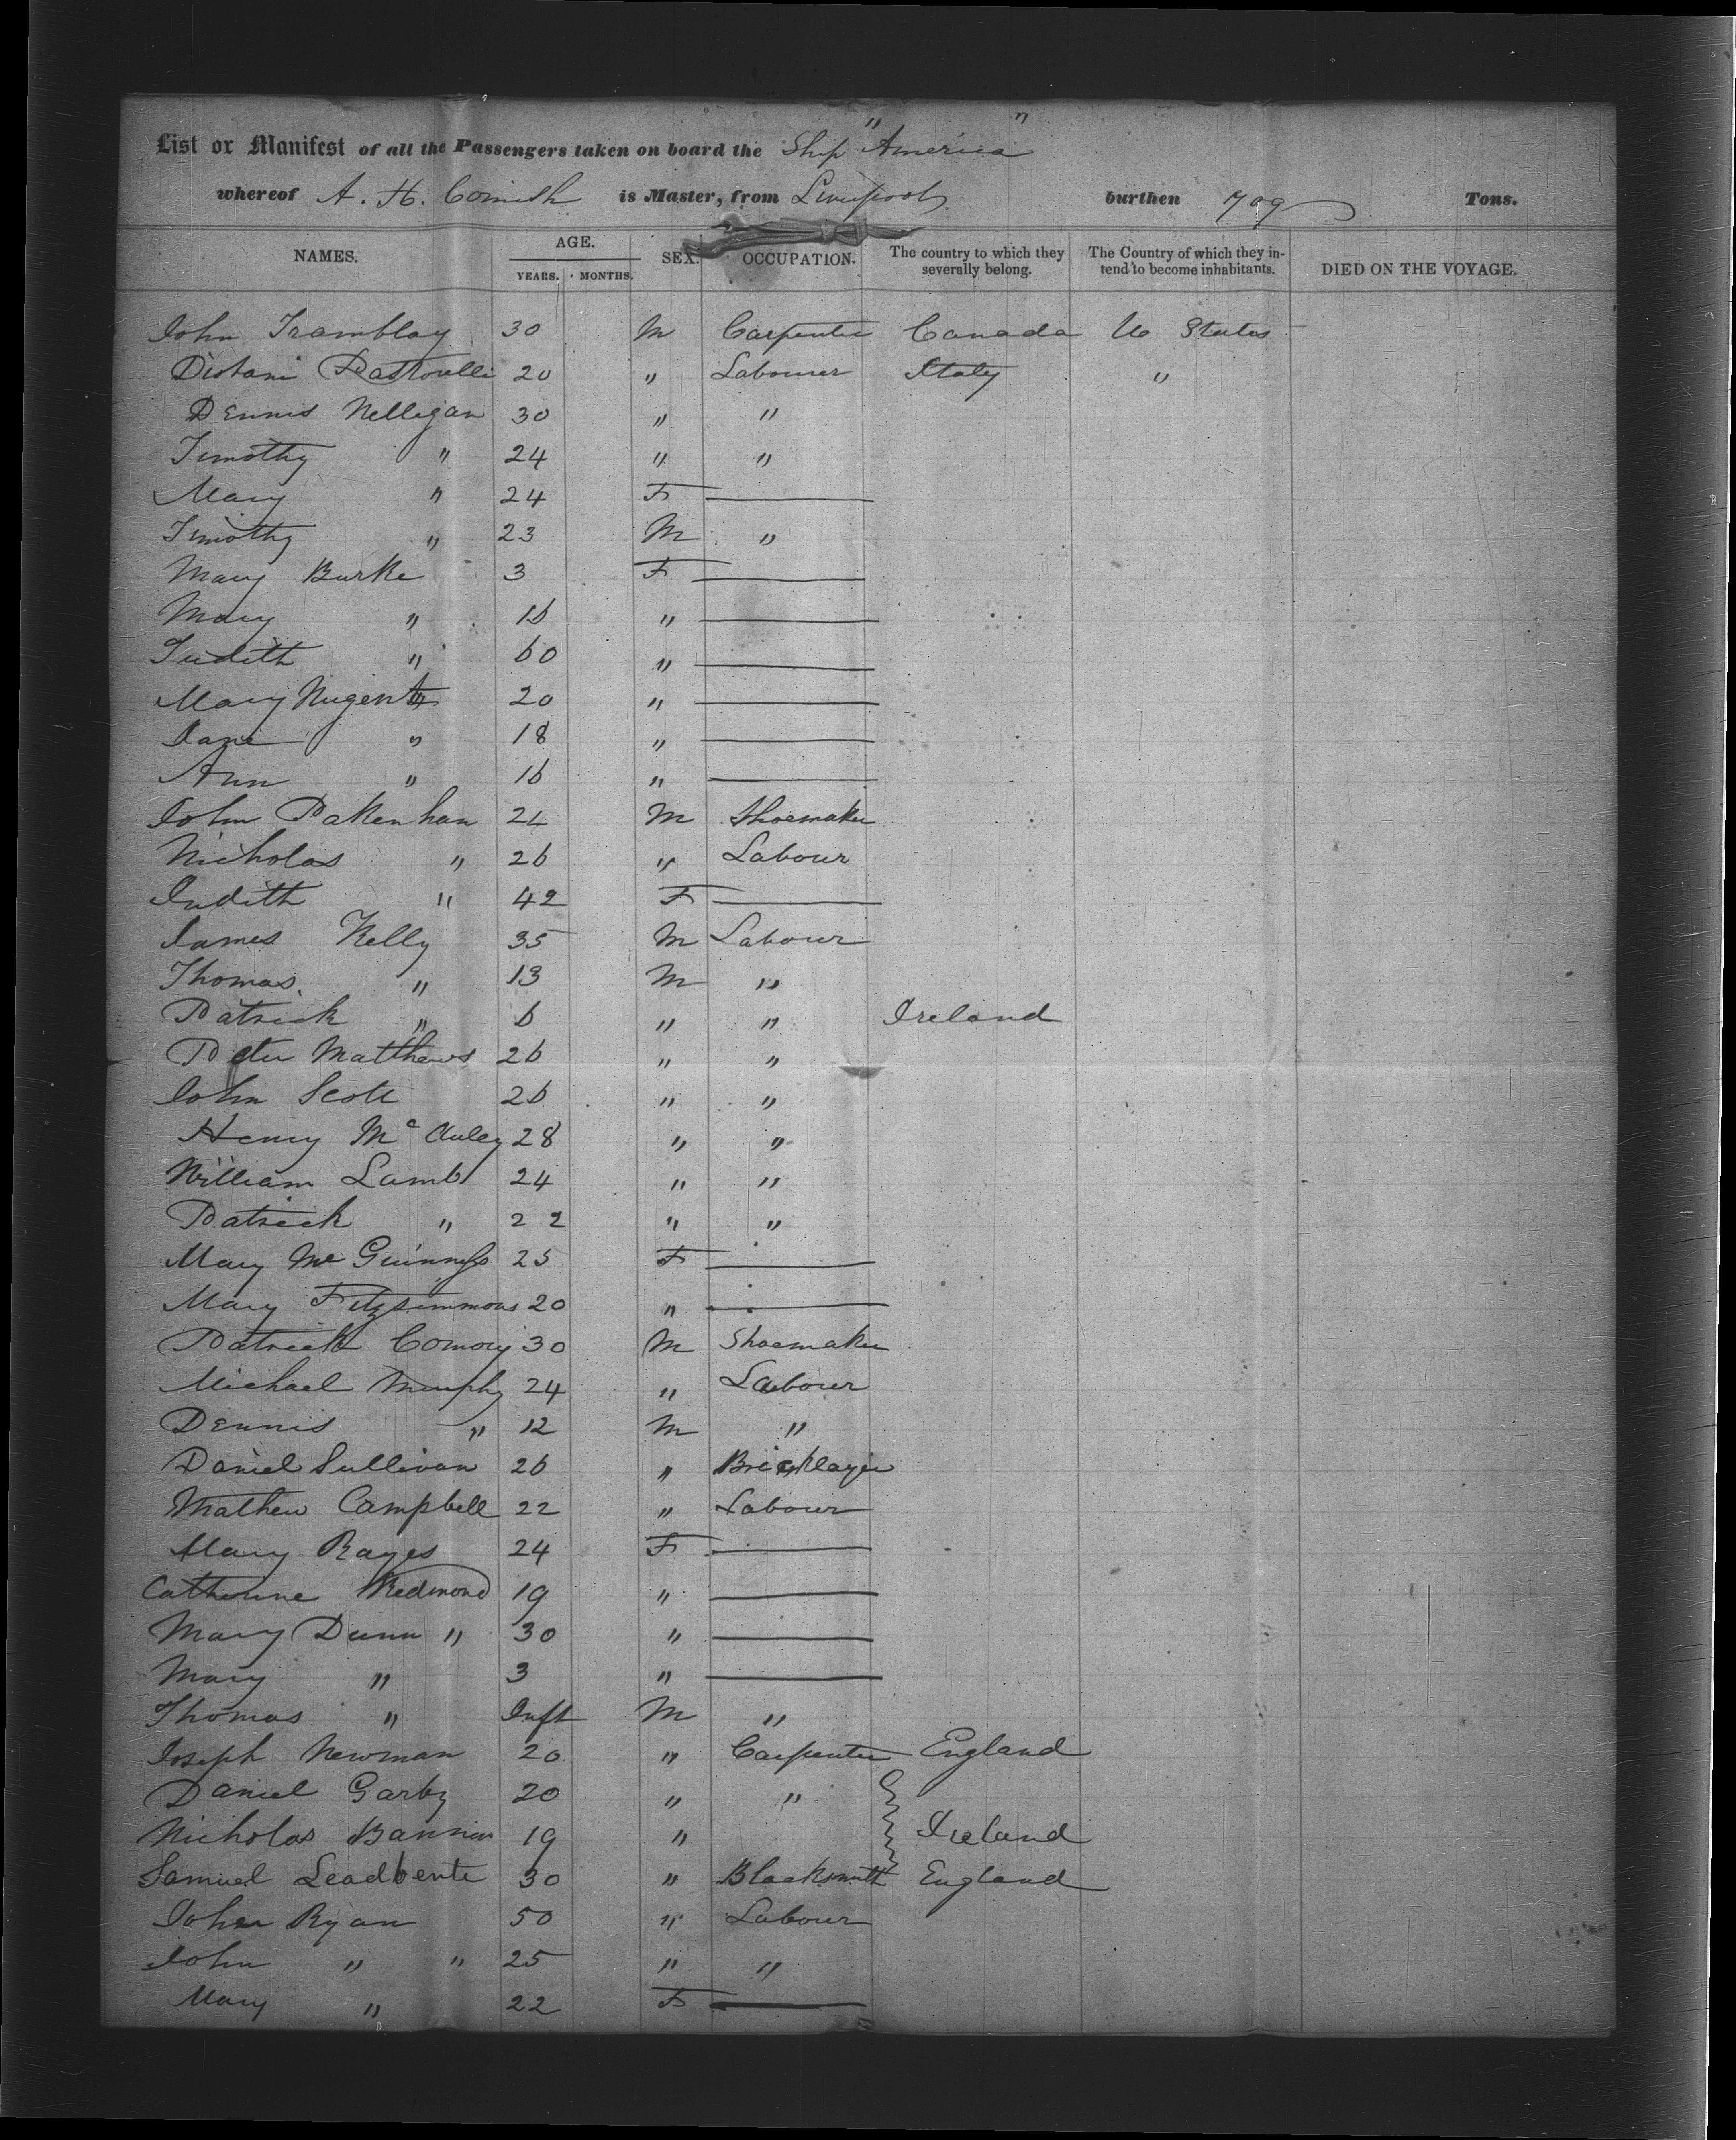 List or Manifest of all the Passengers taken on board the Ship "America"
whereof A. H. Cornish is Master, from Liverpool burthen 709 Tons.
NAMES. AGE. YEARS. MONTHS. SEX. OCCUPATION. The country to which they severally belong. The Country of which they intend to become inhabitants. DIED ON THE VOYAGE.
John Tramblay 30 M Carpenter Canada U States
20 " Labourer Italy "
Dennis Nelligan 30 " "
Timothy " 24 " "
Mary " 24 F
Timothy " 23 M "
Mary Burke 3 F
Mary " 16 "
Judith " 60 "
Mary Nugent " 20 "
Jane " 18 "
Ann " 16 "
John Pakenham M Shoemaker
Nicholas " 26 " Labour
Judith " 42 F
James Kelly 35 M Labour
Thomas " 13 M "
Patrick " 6 " " Ireland
Peter Matthews 26 " "
John Scott 26 " "
Henry Mc Auley 28 " "
William Lamb 24 " "
Patrick " 22 " "
Mary Mc Guinness 25 F
Mary Fitzsimmons 20 "
Patrick 30 M Shoemaker
Michael Murphy 24 " Labour
Dennis " 12 M "
Daniel Sullivan 26 " Bricklayer
Mathew Campbell 22 " Labour
Mary Rayes 24 F
Catherine Redmond 19 "
Mary Dunn " 30 "
Mary " 3 "
Thomas " Inft M "
Joseph Newman 20 " Carpenter England
Daniel Garby 20 " "
Nicholas Bannion 19 " Ireland
Samuel Leadbente 30 " Blacksmith England
John Ryan 50 " Labour
John " " 25 " "
Mary " 22 F